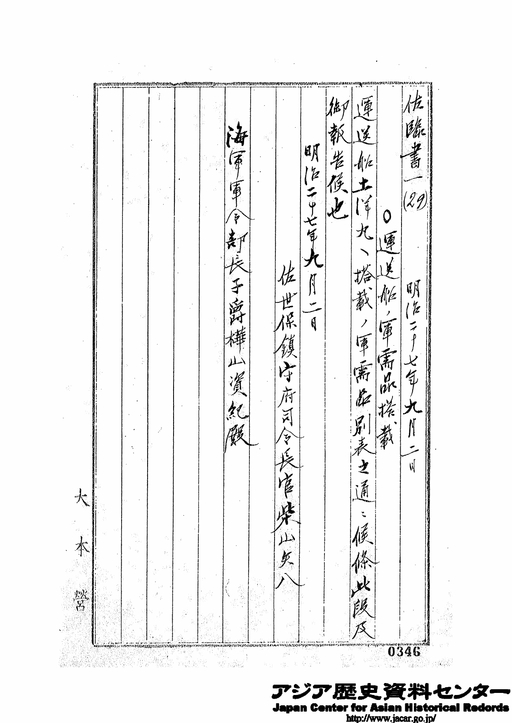 佐臨書一(29)
明治二十七年九月二日
○運送船ノ軍需品搭載
運送船土洋丸ヘ搭載ノ軍需品別表之通ニ候條此段及
御報告候也
明治二十七年九月二日
佐世保鎮守府司令長官柴山矢八
海軍軍令部長子爵樺山資紀殿
大本營
0346
アジア歴史資料センター
Japan Center for Asian Historical Records
http://www.jacar.go.jp/